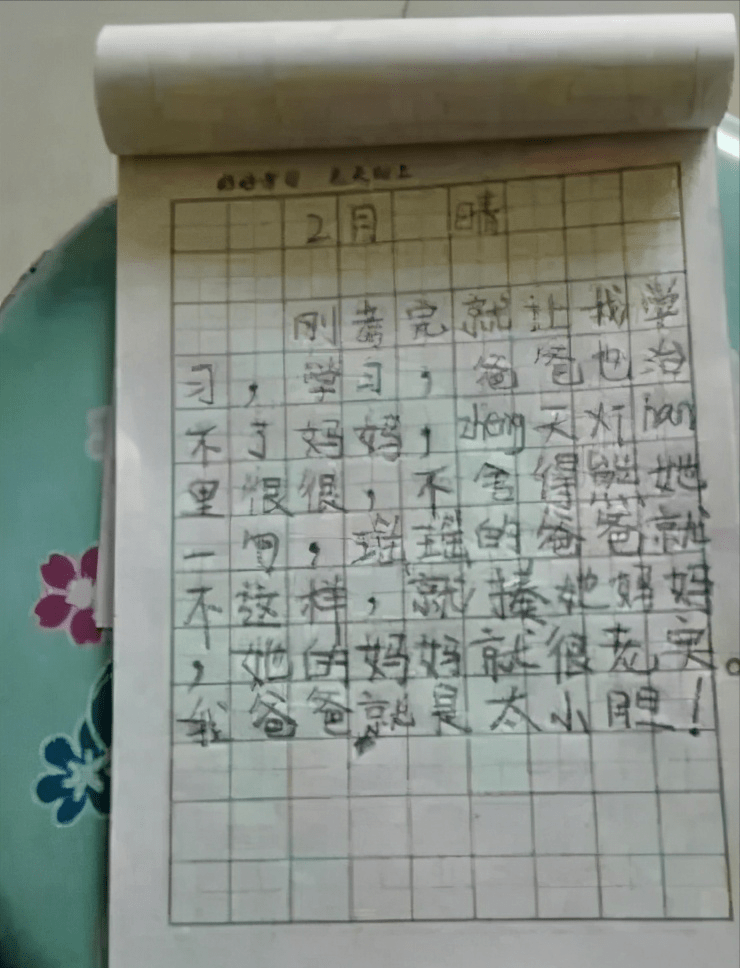 好好学习 天天向上
2月 晴
刚考完就让我学
习，学习，爸爸也治
不了妈妈，zheng天对nan
里很很，不舍得怼她
一句，瑶瑶的爸爸就
不这样，就揍她妈妈
，她的妈妈就很老实。
我爸爸就是太小胆！